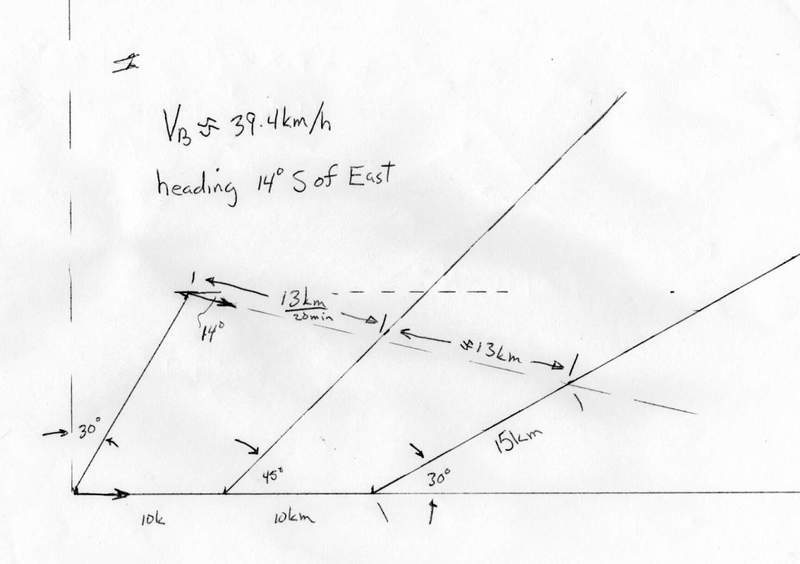 V_B ≈ 39.4km/h
heading 14° S of East
13km
20min
14°
≈13km
30°
45°
15km
30°
10k
10km